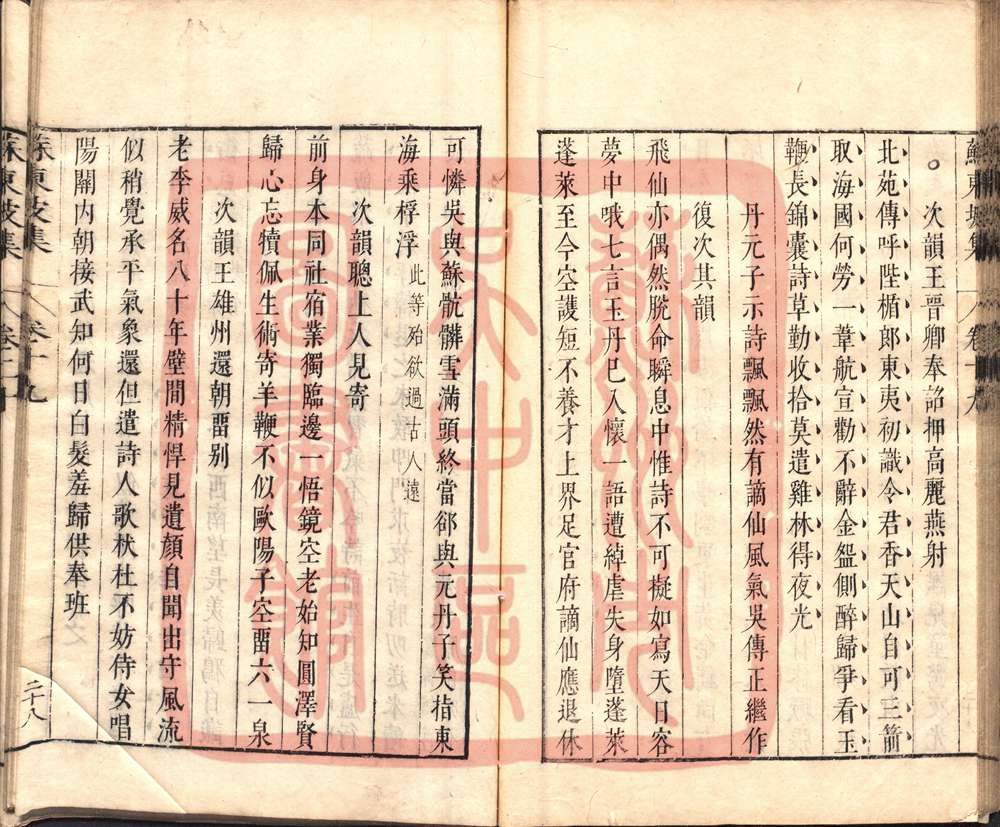 蘇東坡集 卷十九
次韻王晉卿奉詔押高麗燕射
北苑傳呼陛楯郎東夷初識令君香天山自可三箭
取海國何勞一葦航宣勸不辭金盌側醉歸爭看玉
鞭長錦囊詩草勤收拾莫遣雞林得夜光
丹元子示詩飄飄然有謫仙風氣吳傳正繼作
復次其韻
飛仙亦偶然脫命瞬息中惟詩不可擬如寫天日容
夢中哦七言玉丹已入懷一語遭綽虐失身墮蓬萊
蓬萊至今空護短不養才上界足官府謫仙應退休
可憐吳與蘇骯髒雪滿頭終當卻與元丹子笑指東
海乘桴浮此等殆欲過古人遠
次韻聰上人見寄
前身本同社宿業獨臨邊一悟鏡空老始知圓澤賢
歸心忘犢佩生術寄羊鞭不似歐陽子空畱六一泉
次韻王雄州還朝畱别
老李威名八十年壁間精悍見遺顏自聞出守風流
似稍覺承平氣象還但遣詩人歌杕杜不妨侍女唱
陽關內朝接武知何日白髮羞歸供奉班
蘇東坡集 卷十九
二十八